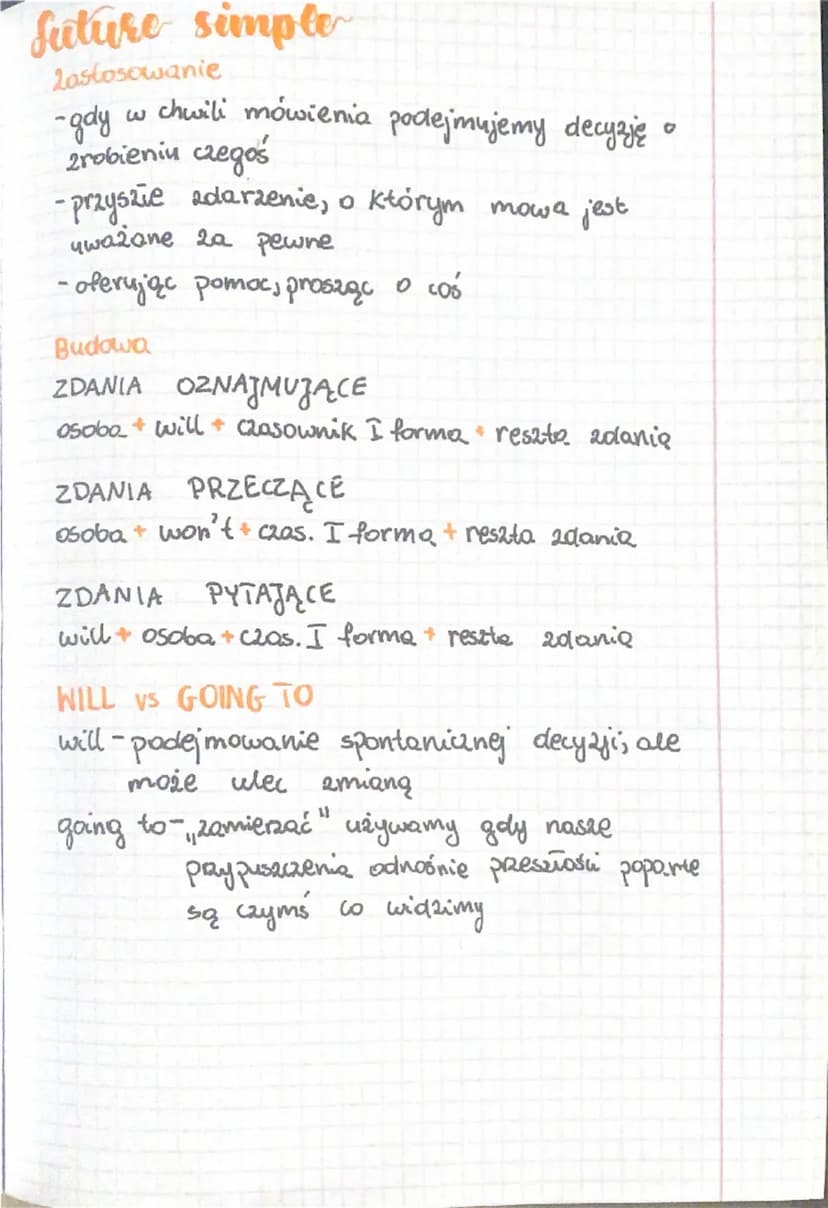 future simple
Zastosowanie
-gdy w chwili mówienia podejmujemy decyzję o
zrobieniu czegoś
-przyszłe zdarzenie, o którym mowa jest
uważane za pewne
-oferując pomoc, prosząc o coś
Budowa
ZDANIA OZNAJMUJĄCE
osoba + will + czasownik I forma + reszta zdania
ZDANIA PRZECZĄCE
osoba + won't + czas. I forma + reszta zdania
ZDANIA PYTAJĄCE
will + osoba + czas. I forma + reszta zdania
WILL vs GOING TO
will - podejmowanie spontanicznej decyzji, ale
może ulec zmianą
going to - „zamierzać" używamy gdy nasze
przypuszczenia odnośnie przeszłości poparte
są czymś co widzimy